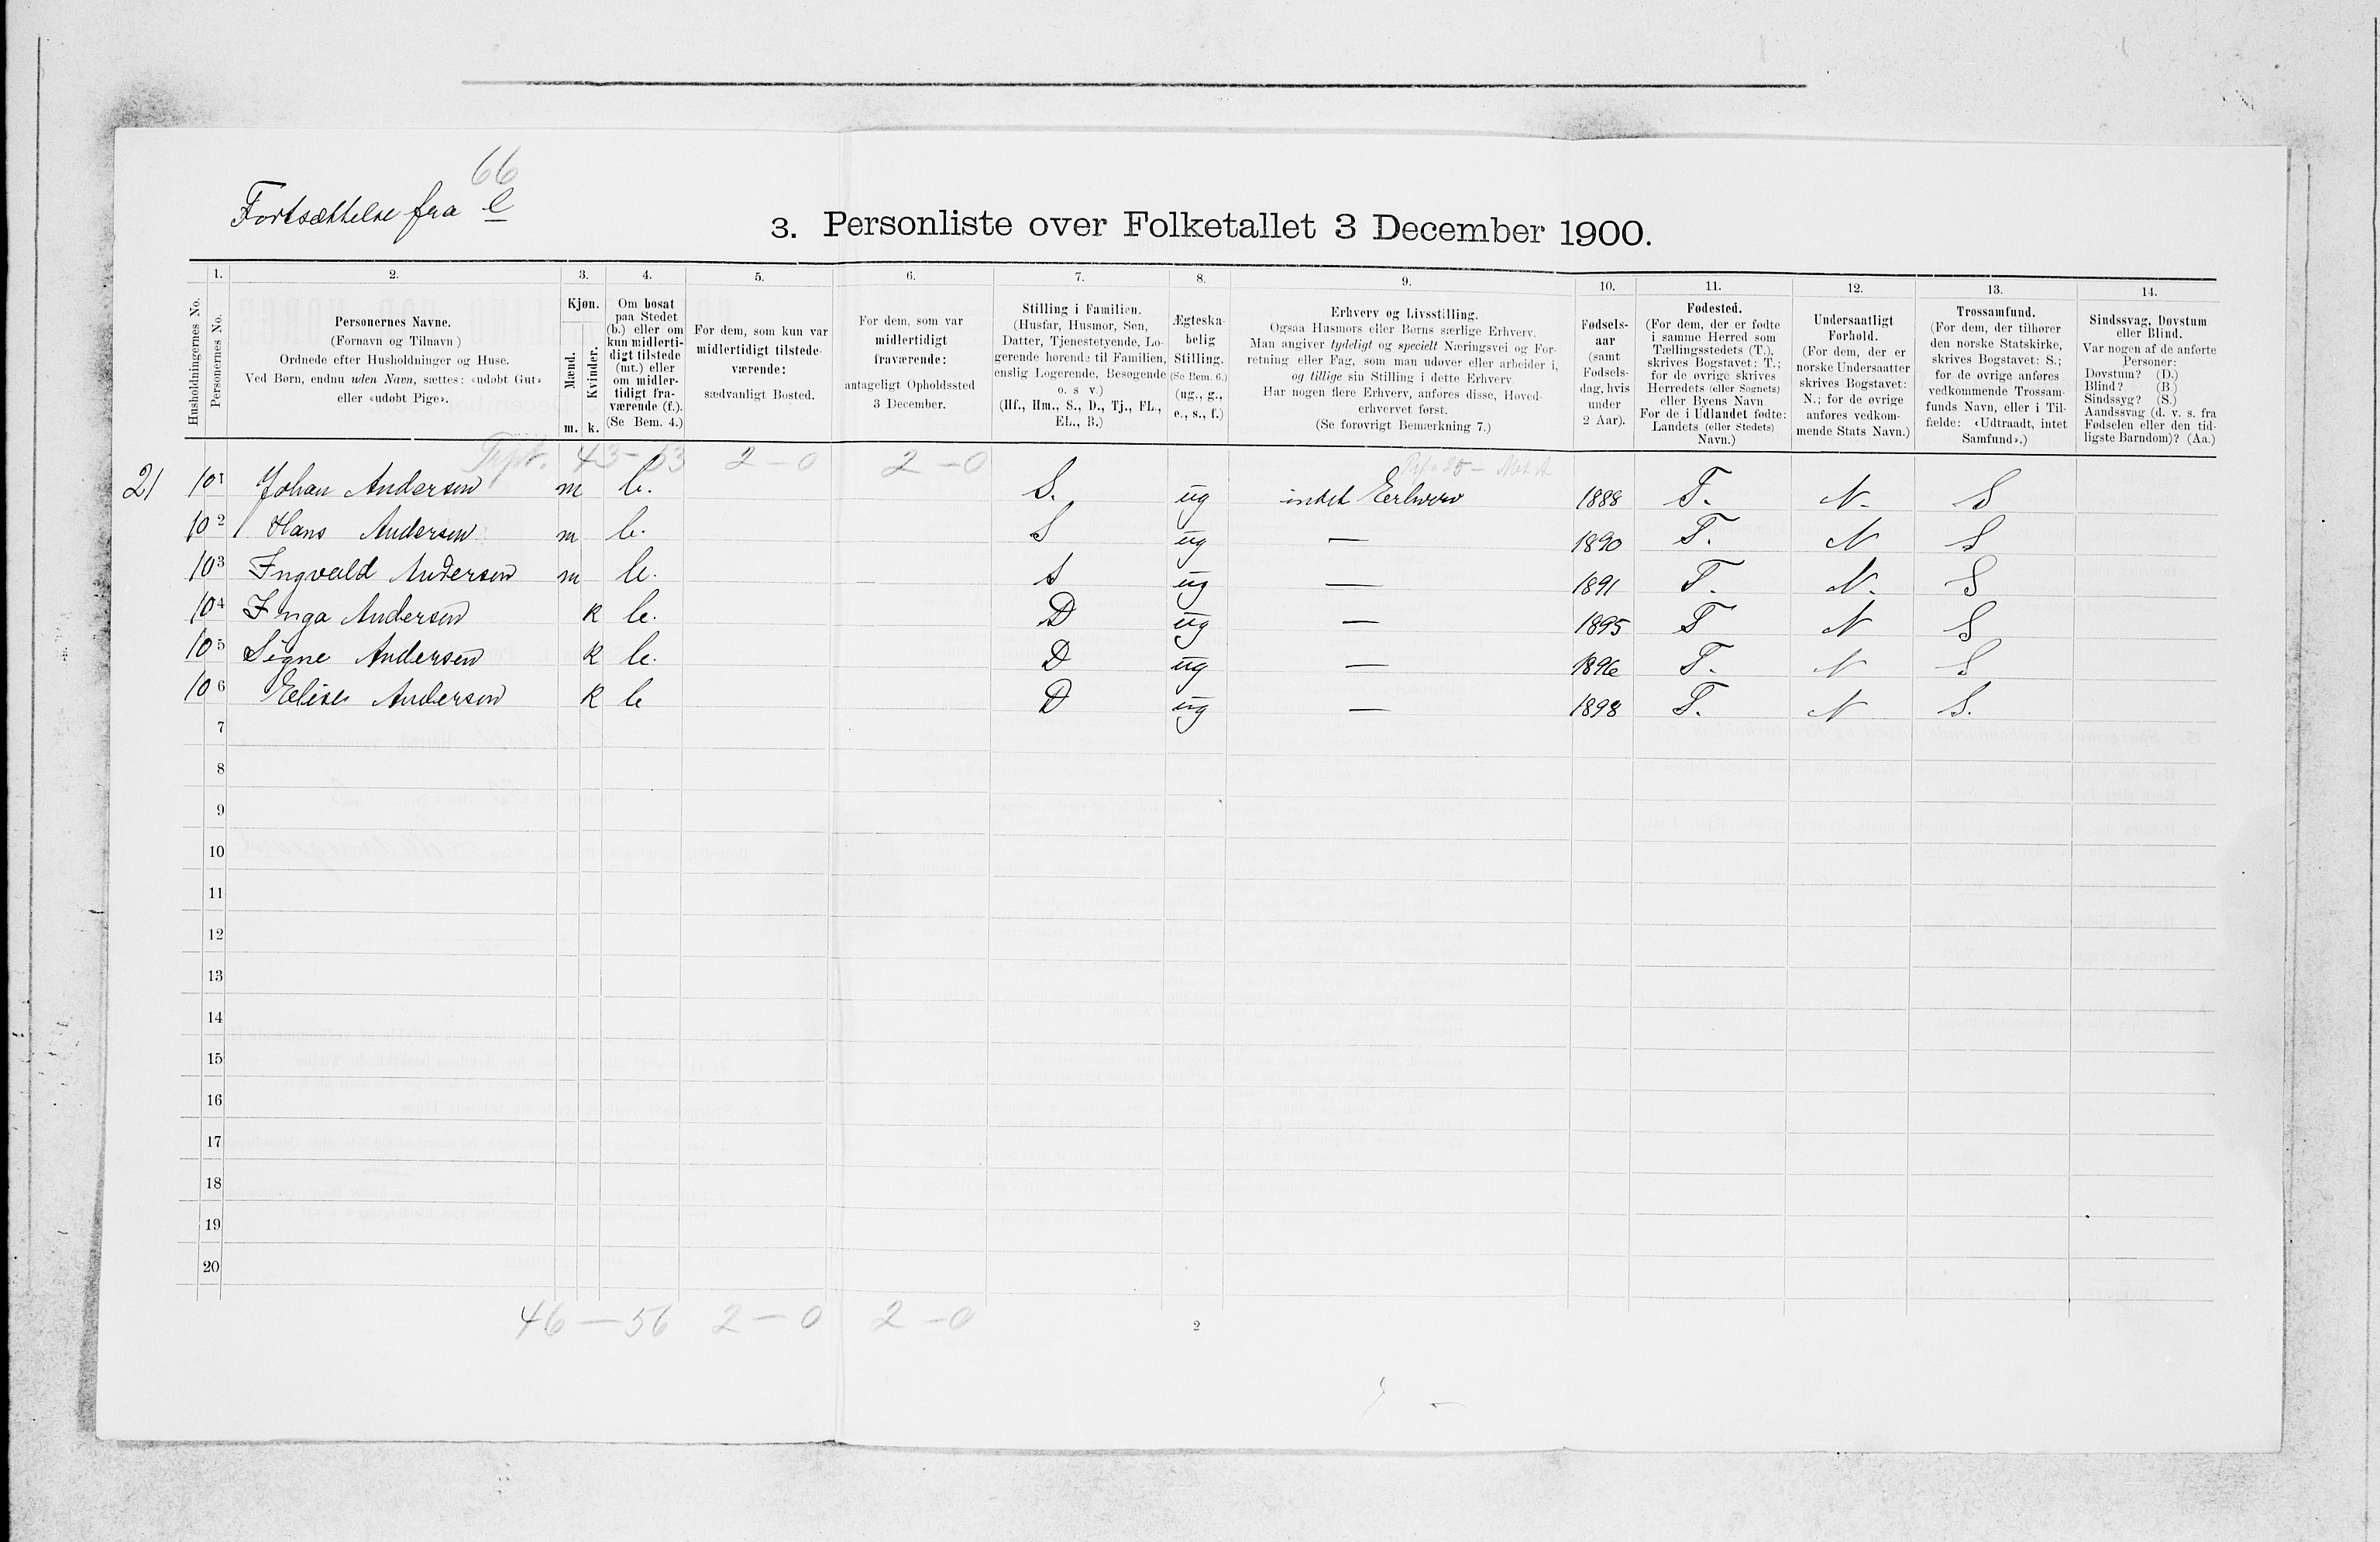 66
Fortsættelse fra e
3. Personliste over Folketallet 3 December 1900.
1. 2. 3. 4. 5. 6. 7. 8. 9. 10. 11. 12. 13. 14.
Husholdningernes No.
Personernes No.
Personernes Navne.
(Fornavn og Tilnavn)
Ordnede efter Husholdninger og Huse.
Ved Børn, endnu uden Navn, sættes: «udøbt Gut»
eller «udøbt Pige».
Kjøn.
Mænd.
Kvinder.
m. k.
Om bosat
paa Stedet
(b.) eller om
kun midlerti-
digt tilstede
(mt.) eller
om midler-
tidigt fra-
værende (f.).
(Se Bem. 4.)
For dem, som kun var
midlertidigt tilstede-
værende:
sædvanligt Bosted.
For dem, som var
midlertidigt
fraværende:
antageligt Opholdssted
3 December.
Stilling i Familien.
(Husfar, Husmor, Søn,
Datter, Tjenestetyende, Lo-
gerende hørende til Familien,
enslig Logerende, Besøgende
o. s. v.)
(Hf., Hm., S., D., Tj., FL.,
EL., B.)
Ægteska-
belig
Stilling.
(Se Bem. 6.)
(ug., g.,
e., s., f.)
Erhverv og Livsstilling.
Ogsaa Husmors eller Børns særlige Erhverv.
Man angiver tydeligt og specielt Næringsvei og For-
retning eller Fag, som man udøver eller arbeider i,
og tillige sin Stilling i dette Erhverv.
Har nogen flere Erhverv, anføres disse, Hoved-
erhvervet først.
(Se forøvrigt Bemærkning 7.)
Fødsels-
aar
(samt
Fødsels-
dag, hvis
under
2 Aar).
Fødested.
(For dem, der er fødte
i samme Herred som
Tællingsstedets (T.),
skrives Bogstavet: T.;
for de øvrige skrives
Herredets (eller Sognets)
eller Byens Navn.
For de i Udlandet fødte:
Landets (eller Stedets)
Navn.)
Undersaatligt
Forhold.
(For dem, der er
norske Undersaatter
skrives Bogstavet:
N.; for de øvrige
anføres vedkom-
mende Stats Navn.)
Trossamfund.
(For dem, der tilhører
den norske Statskirke,
skrives Bogstavet: S.;
for de øvrige anføres
vedkommende Trossam-
funds Navn, eller i Til-
fælde: «Udtraadt, intet
Samfund».)
Sindssvag, Døvstum
eller Blind.
Var nogen af de anførte
Personer:
Døvstum? (D.)
Blind? (B.)
Sindssyg? (S.)
Aandssvag (d. v. s. fra
Fødselen eller den tid-
ligste Barndom)? (Aa.)
43-53 2-0 2-0
21 10 1 Johan Andersen m b. S. ug intet Erhverv 1888 T. N. S
10 2 Hans Andersen m b. S ug — 1890 T. N S
10 3 Ingvald Andersen m b. S ug — 1891 T. N. S
10 4 Inga Andersen k b. D ug — 1895 T N S
10 5 Signe Andersen k b. D ug — 1896 T. N S
10 6 Elise Andersen k b D ug — 1898 T. N S.
7
8
9
10
11
12
13
14
15
16
17
18
19
20
46-56 2-0 2-0
2